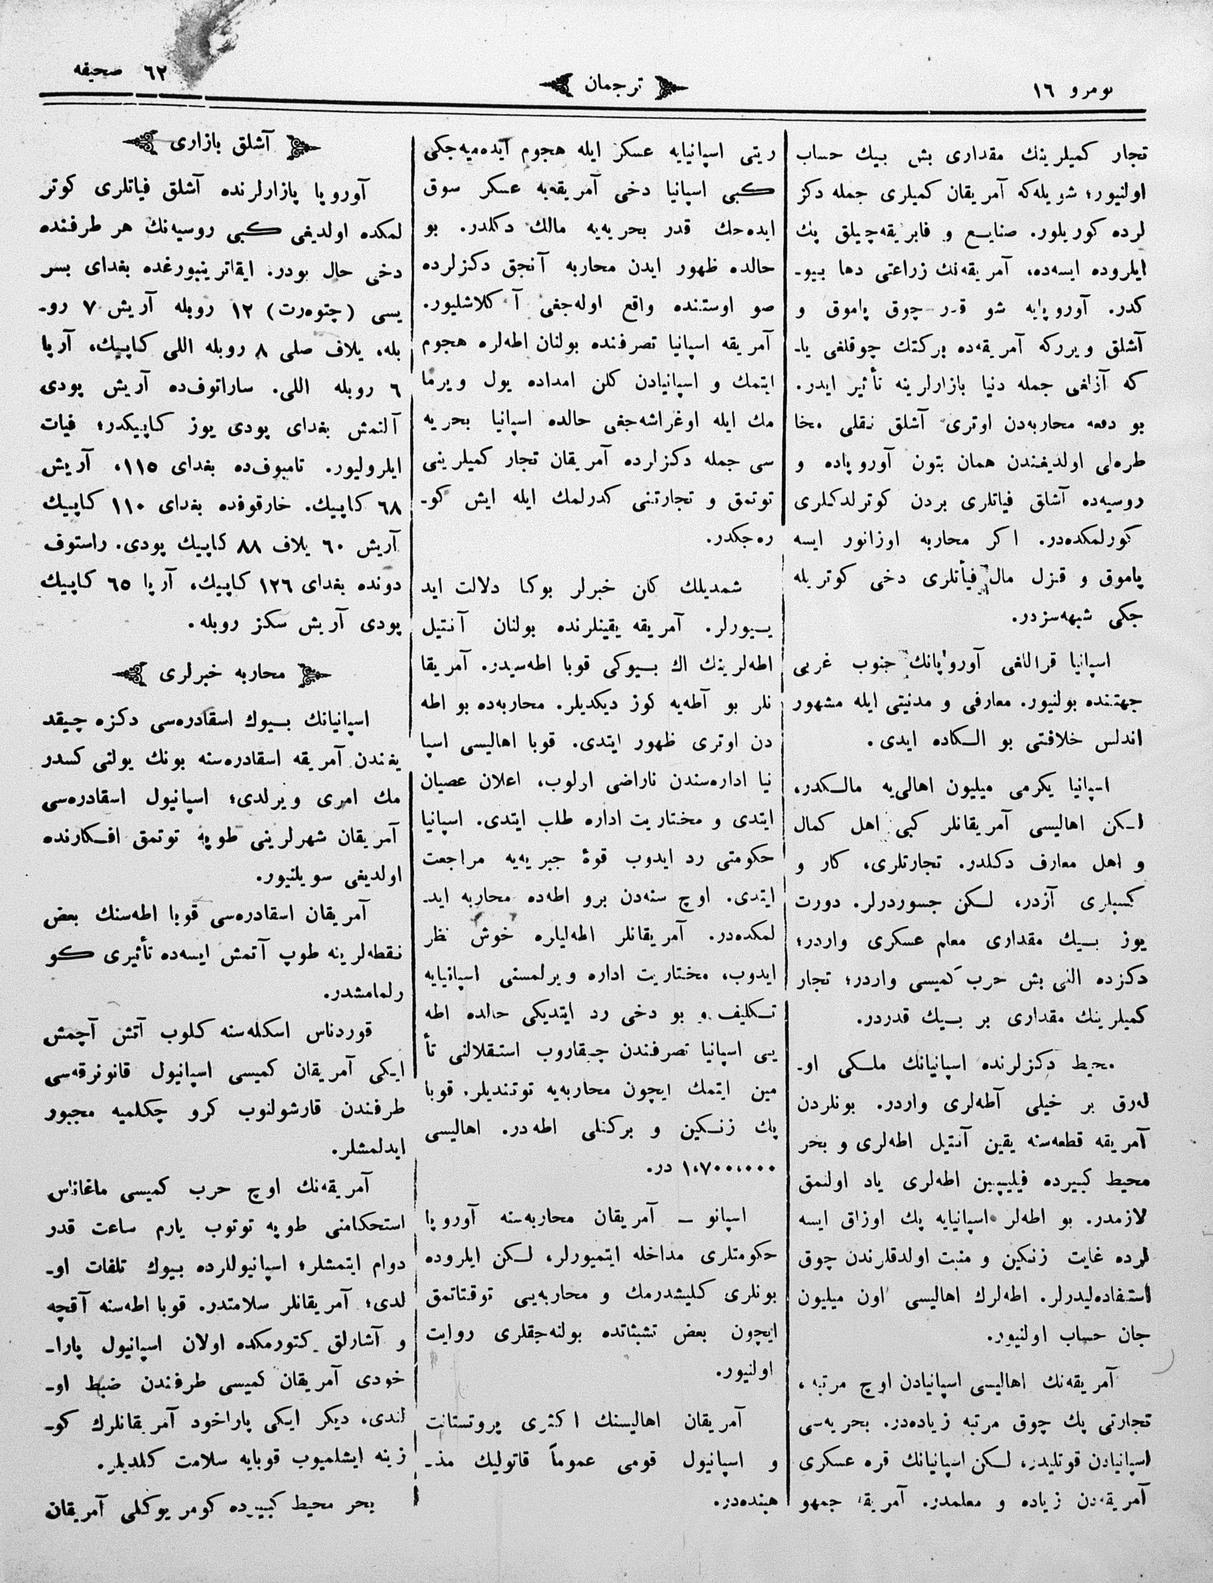 نومرو ١٦
ترجمان
صحيفه ٦٢
تجار كميلرينك مقدارى بش بيك حساب
اولنيور؛ شويله‌كه آمريقان كميلرى جمله دكز
لرده كوريلور. صنايع و فابريقه‌چيلق پك
ايلروده ايسه‌ده، آمريقه‌نك زراعتى دها بيو-
كدر. آوروپايه شو قدر چوق پاموق و
آشلق ويرركه آمريقه‌ده بركتك چوقلغى يا-
كه آزلغى جمله دنيا بازارلرينه تأثير ايدر.
بو دفعه محاربه‌دن اوترى آشلق نقلى مخا
طره‌لى اولديغندن همان بتون آوروپاده و
روسيه‌ده آشلق فياتلرى بردن كوترلدكلرى
كورلمكده‌در. اكر محاربه اوزانور ايسه
پاموق و قزل مال فيأتلرى دخى كوتريله
جكى شبهه‌سزدر.
اسپانيا قراللغى آوروپانك جنوب غربى
جهتنده بولنيور. معارفى و مدنيتى ايله مشهور
اندلس خلافتى بو الكاده ايدى.
اسپانيا يكرمى ميليون اهالى‌يه مالكدر،
لكن اهاليسى آمريقانلر كبى اهل كمال
و اهل معارف دكلدر. تجارتلرى، كار و
كسبلرى آزدر، لكن جسوردرلر. دورت
يوز بيك مقدارى معلم عسكرى واردر؛
دكزده اللى بش حرب كميسى واردر؛ تجار
كميلرينك مقدارى بر بيك قدردر.
محيط دكزلرنده اسپانيانك ملكى او-
له‌رق بر خيلى آطه‌لرى واردر. بونلردن
آمريقه قطعه‌سنه يقين آنتيل اطه‌لرى و بحر
محيط كبيرده فيليپين اطه‌لرى ياد اولنمق
لازمدر. بو اطه‌لر اسپانيايه پك اوزاق ايسه
لرده غايت زنكين و منبت اولدقلرندن چوق
استفاده‌ليدرلر. اطه‌لرك اهاليسى اون ميليون
جان حساب اولنيور.
آمريقه‌نك اهاليسى اسپانيادن اوچ مرتبه،
تجارتى پك چوق مرتبه زياده‌در. بحريه‌سى
اسپانيادن قوتليدر، لكن اسپانيانك قره عسكرى
آمريقه‌دن زياده و معلمدر. آمريقه جمهو
ريتى اسپانيايه عسكر ايله هجوم ايده‌ميه‌جكى
كبى اسپانيا دخى آمريقه‌يه عسكر سوق
ايده‌جك قدر بحريه‌يه مالك دكلدر. بو
حالده ظهور ايدن محاربه آنجق دكزلرده
صو اوستنده واقع اوله‌جغى آكلاشليور.
آمريقه اسپانيا تصرفنده بولنان اطه‌لره هجوم
ايتمك و اسپانيادن كلن امداده يول ويرما
مك ايله اوغراشه‌جغى حالده اسپانيا بحريه
سى جمله دكزلرده آمريقان تجار كميلرينى
توتمق و تجارتنى كدرلمك ايله ايش كو-
ره‌جكدر.
شمديلك كلن خبرلر بوكا دلالت ايد
ييورلر. آمريقه يقينلرنده بولنان آنتيل
اطه‌لرينك اك بيوكى قوبا اطه‌سيدر. آمريقا
نلر بو آطه‌يه كوز ديكديلر. محاربه‌ده بو اطه
دن اوترى ظهور ايتدى. قوبا اهاليسى اسپا
نيا اداره‌سندن ناراضى اولوب، اعلان عصيان
ايتدى و مختاريت اداره طلب ايتدى. اسپانيا
حكومتى رد ايدوب قوۀ جبريه‌يه مراجعت
ايتدى. اوچ سنه‌دن برو اطه‌ده محاربه ايد-
لمكده‌در. آمريقانلر اطه‌ليلره خوش نظر
ايدوب، مختاريت اداره ويرلمسنى اسپانيايه
تكليف و بو دخى رد ايتديكى حالده اطه
يى اسپانيا تصرفندن چيقاروب استقلالنى تأ
مين ايتمك ايچون محاربه‌يه توتنديلر. قوبا
پك زنكين و بركتلى اطه‌در. اهاليسى
١،٧٠٠،٠٠٠ در.
اسپانو — آمريقان محاربه‌سنه آوروپا
حكومتلرى مداخله ايتميورلر، لكن ايلروده
بونلرى كليشدرمك و محاربه‌يى توقتاتمق
ايچون بعض تشبثاتده بولنه‌جقلرى روايت
اولنيور.
آمريقان اهاليسنك اكثرى پروتستانت
و اسپانيول قومى عموماً قاتوليك مذ-
هبنده‌در.
آشلق بازارى
آوروپا پازارلرنده آشلق فياتلرى كوتر
لمكده اولديغى كبى روسيه‌نك هر طرفنده
دخى حال بودر. ايقاترينبورغده بغداى بسر
يسى (چتوه‌رت) ١٢ روبله آريش ٧ رو-
بله، يلاف صلى ٨ روبله اللى كاپيك، آرپا
٦ روبله اللى. ساراتوف‌ده آريش پودى
آلتمش بغداى پودى يوز كاپيكدر؛ فيات
ايلروليور. تامبوف‌ده بغداى ١١٥، آريش
٦٨ كاپيك. خارقوفده بغداى ١١٠ كاپيك
آريش ٦٠ يلاف ٨٨ كاپيك پودى. راستوف
دونده بغداى ١٢٦ كاپيك، آرپا ٦٥ كاپيك
پودى آريش سكز روبله.
محاربه خبرلرى
اسپانيانك بيوك اسقادره‌سى دكزه چيقد
يغندن آمريقه اسقادره‌سنه بونك يولنى كسدر
مك امرى ويرلدى؛ اسپانيول اسقادره‌سى
آمريقان شهرلرينى طوپه توتمق افكارنده
اولديغى سويلنيور.
آمريقان اسقادره‌سى قوبا اطه‌سنك بعض
نقطه‌لرينه طوپ آتمش ايسه‌ده تأثيرى كو
رلمامشدر.
قوردناس اسكله‌سنه كلوب آتش آچمش
ايكى آمريقان كميسى اسپانيول قانونرقه‌سى
طرفندن قارشولنوب كرو چكلميه مجبور
ايدلمشلر.
آمريقه‌نك اوچ حرب كميسى ماغاناس
استحكامنى طوپه توتوب يارم ساعت قدر
دوام ايتمشلر؛ اسپانيوللرده بيوك تلفات او-
لدى؛ آمريقانلر سلامتدر. قوبا اطه‌سنه آقچه
و آشارلق كتورمكده اولان اسپانيول پارا-
خودى آمريقان كميسى طرفندن ضبط او-
لندى، ديكر ايكى پاراخود آمريقانلرك كو-
زينه ايشلميوب قوبايه سلامت كلديلر.
بحر محيط كبيرده كومر يوكلى آمريقان